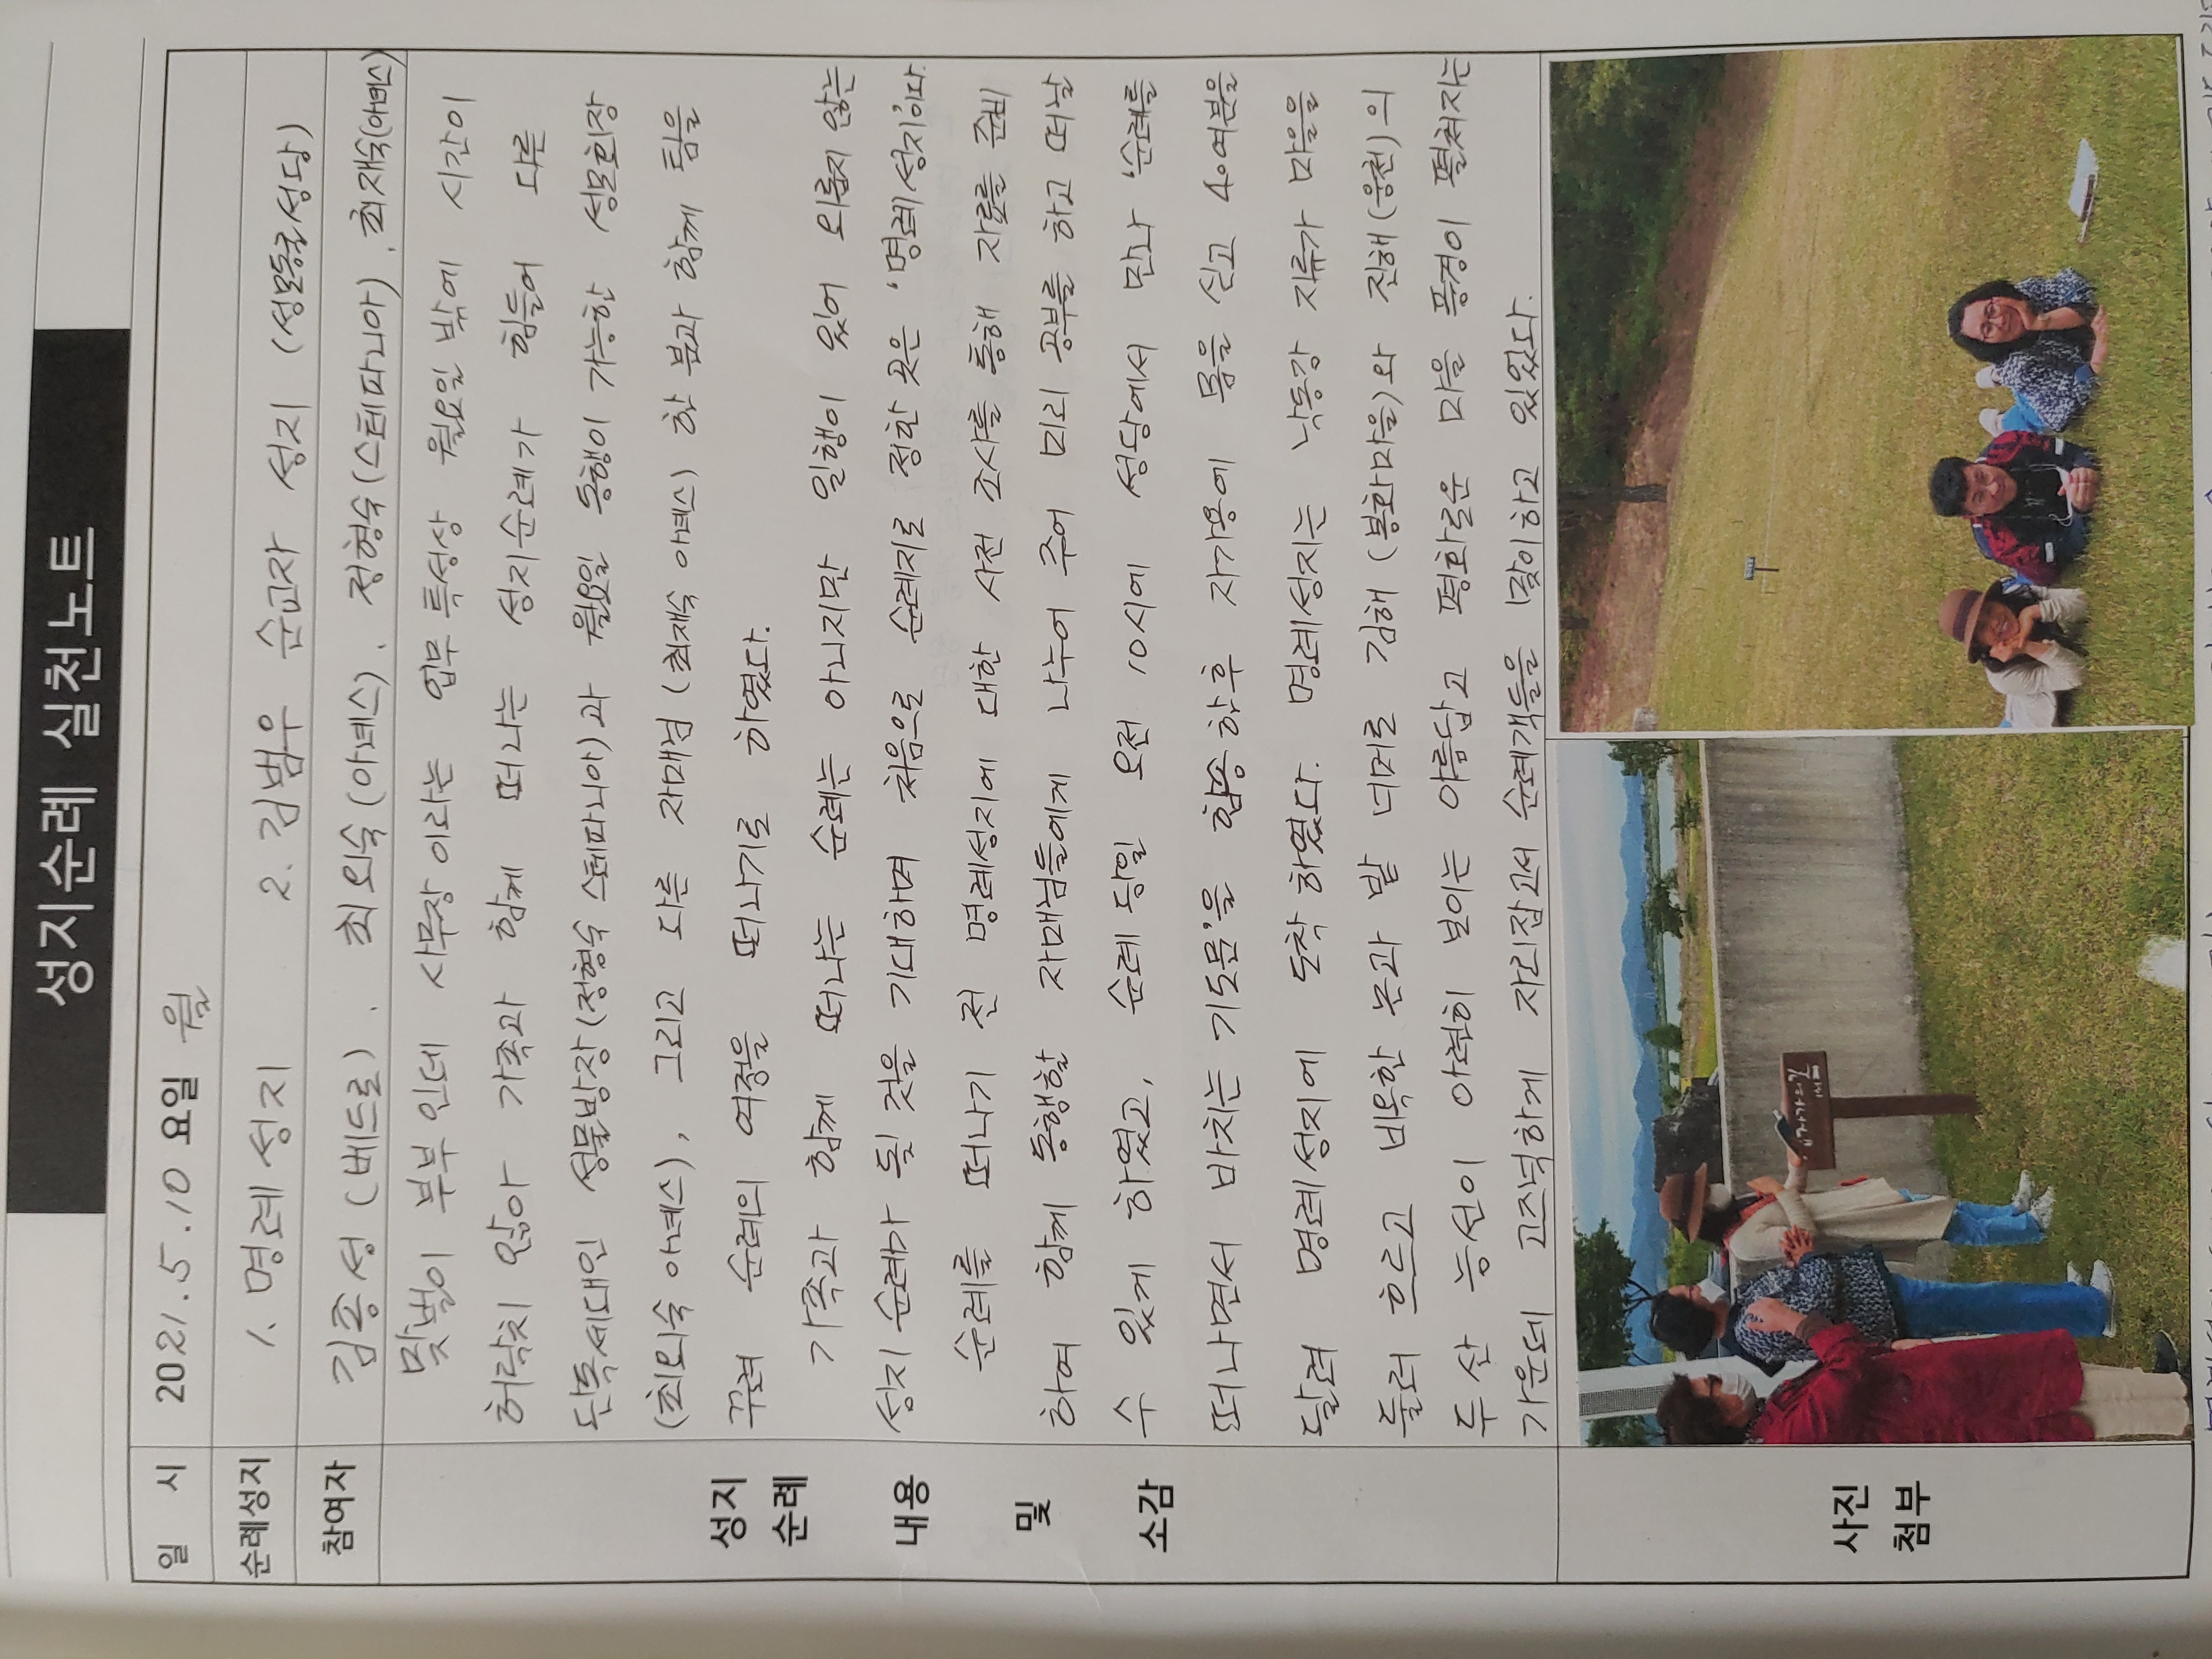 성지순례 실천노트
일 시 2021.5.10 요일 월
순례성지 1. 명례성지 2. 김범우 순교자 성지 (성모동굴성당)
참여자 김종성(베드로), 최외숙(아녜스), 정형숙(스테파니아), 최재숙(아녜스)
맞벌이 부부인데 사무장이라는 업무 특성상 월요일 밖에 시간이
허락치 않아 가족과 함께 떠나는 성지순례가 힘들어 다른
단독세대인 성물방장(정형숙 스테파니아)과 월요일 동행이 가능한 성모회장
(최외숙 아녜스), 그리고 다른 자매님(최재숙 아녜스) 한 분과 함께 팀을
꾸려 순례의 여정을 떠나기로 하였다.
가족과 함께 떠나는 순례는 아니지만 일행이 있어 외롭지 않는
성지 순례가 될 것을 기대하며 처음으로 순례지로 정한 곳은 '명례성지'이다.
순례를 떠나기 전 명례성지에 대한 사전 조사를 통해 자료를 준비
하여 함께 동행할 자매님들에게 나누어 주어 미리 공부를 하고 떠날
수 있게 하였고, 순례 당일 오전 10시에 성당에서 만나 '순례를
떠나면서 바치는 기도문'을 합송한후 자가용에 몸을 싣고 40여분을
달려 명례성지에 도착하였다. 명례성지는 낙동강 지류가 마을을
둘러 흐르고 비옥한 논과 밭 너머로 김해(봉화마을)와 진해(웅천)의
두 산 능선이 아련히 보이는 아름답고 평화로운 마을 풍경이 펼쳐지는
가운데 고즈넉하게 자리잡고서 순례객들을 맞이하고 있었다.
성지
순례
내용
및
소감
사진
첨부
십자가의 길